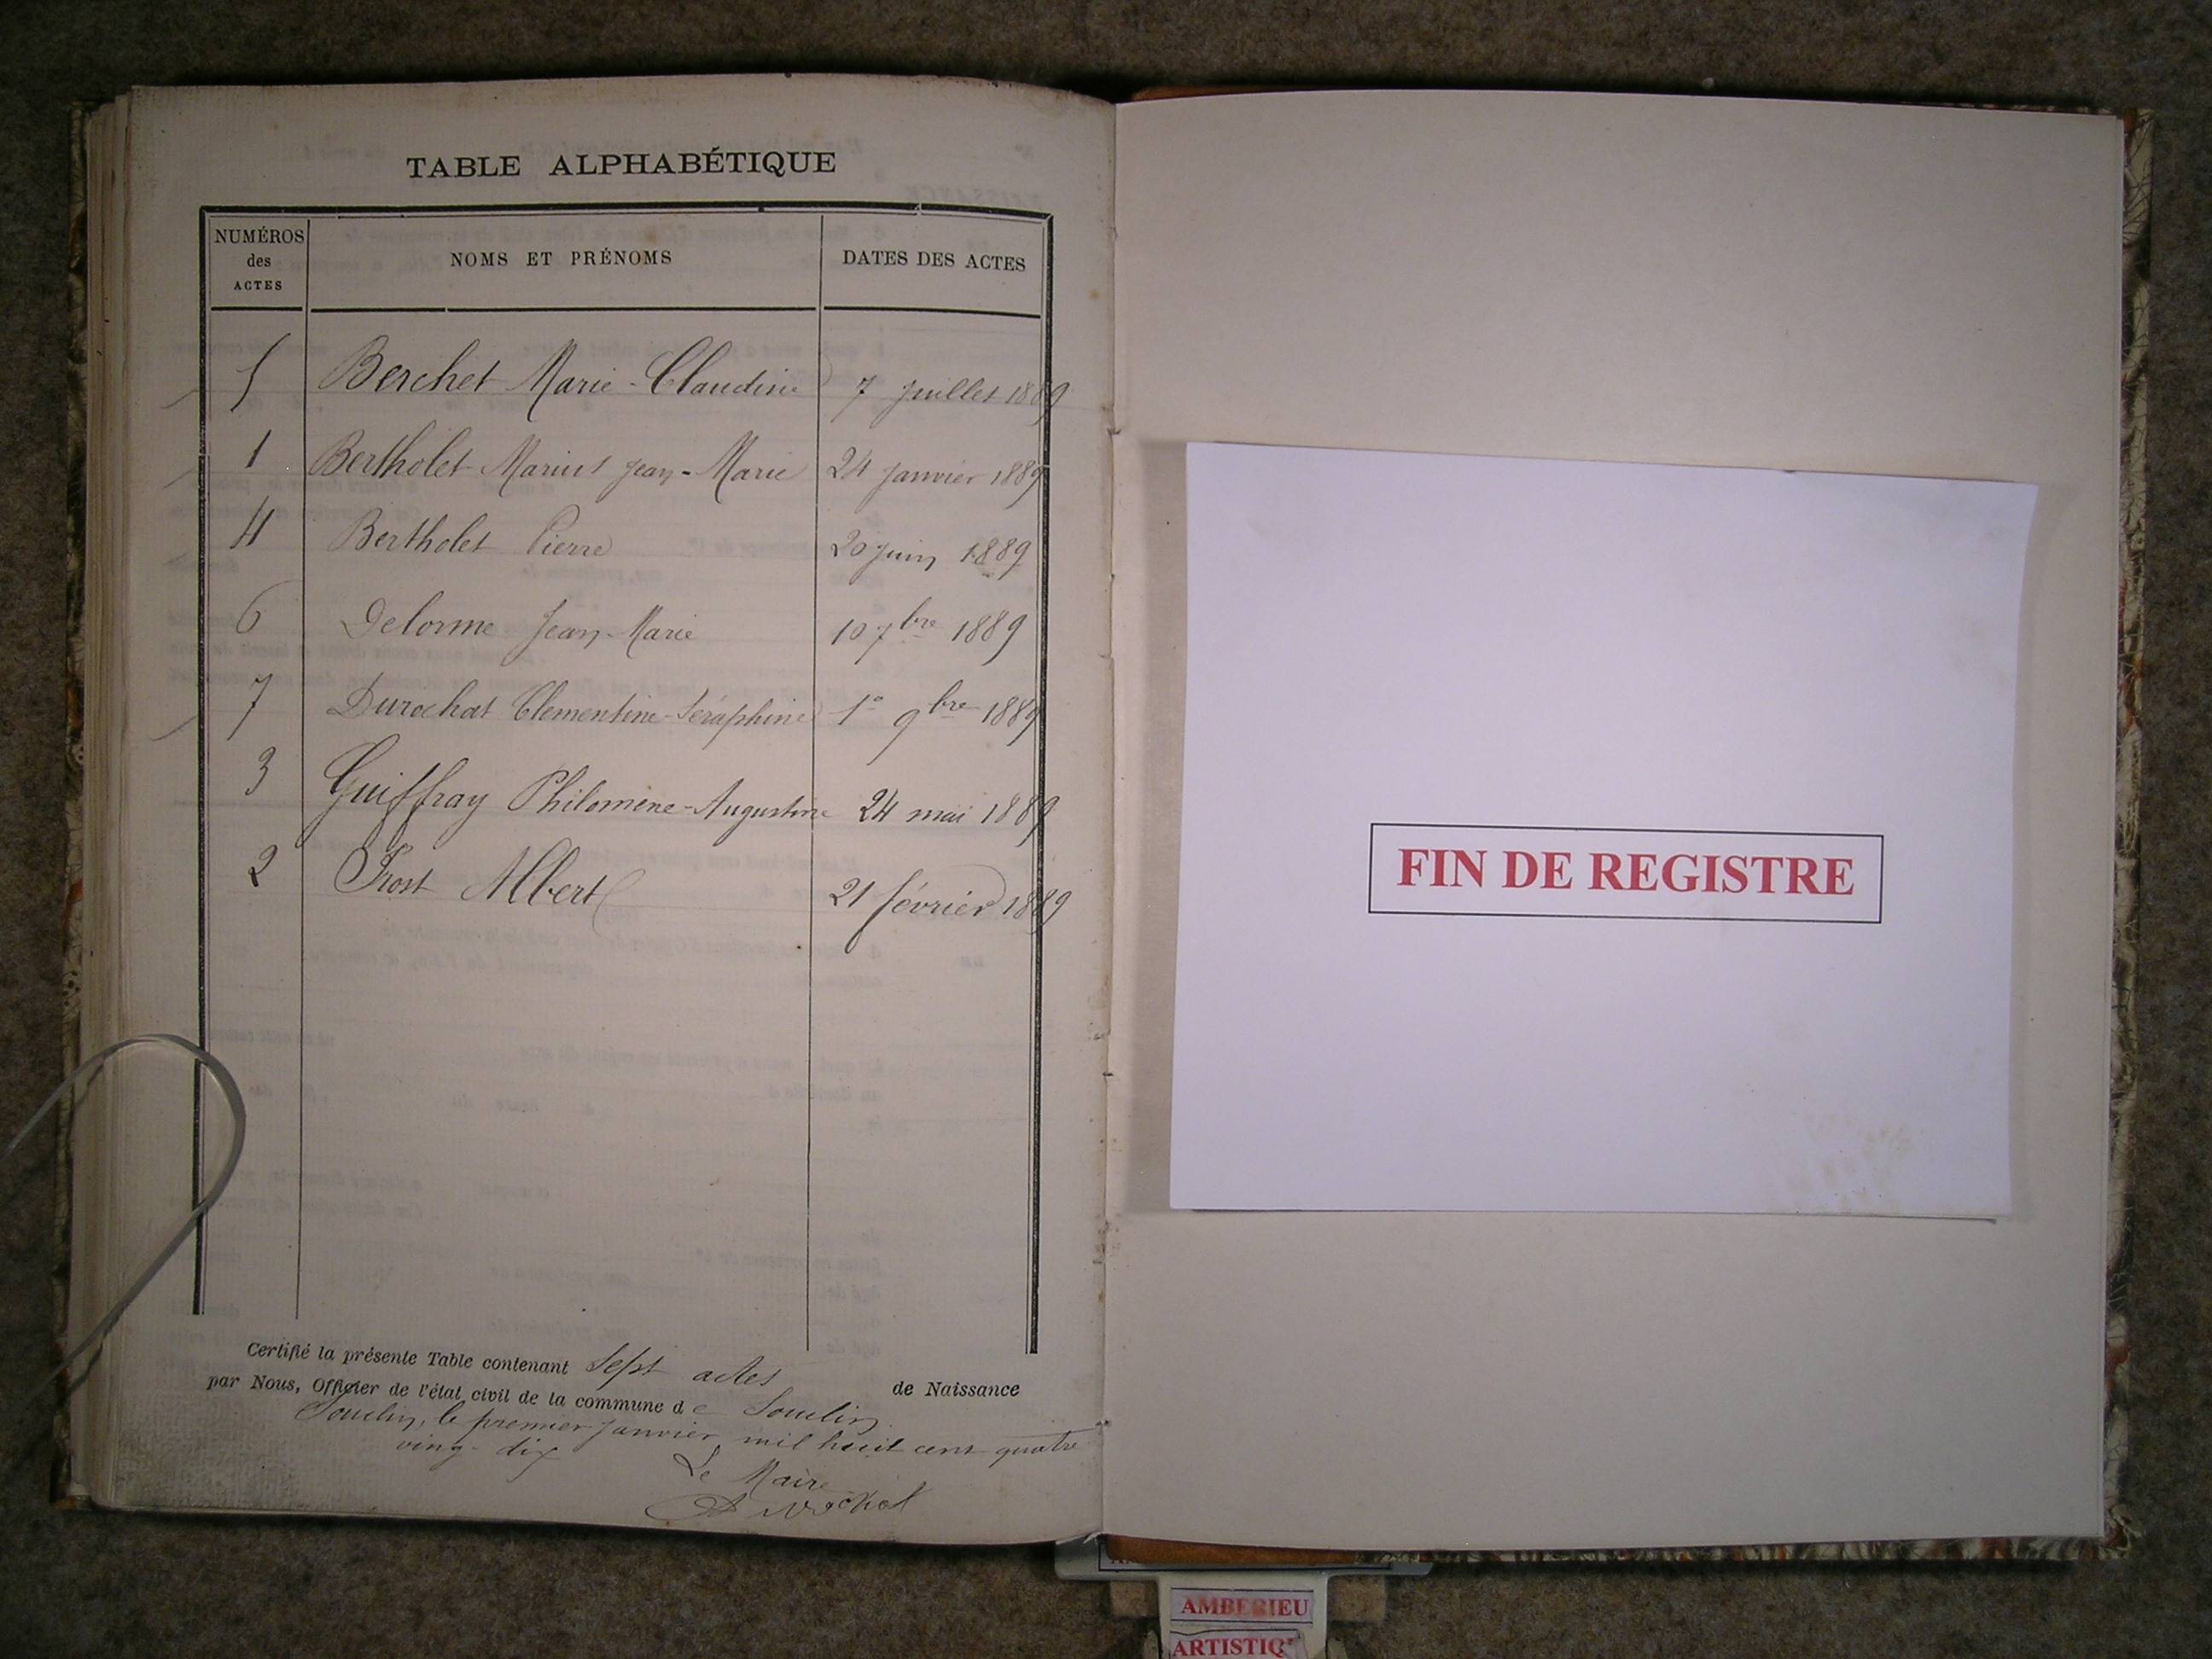 TABLE ALPHABÉTIQUE
NUMÉROS des ACTES NOMS ET PRÉNOMS DATES DES ACTES
5 Berchet Marie-Claudine 7 juillet 1889
1 Bertholet Marius Jean-Marie 24 janvier 1889
4 Bertholet Pierre 20 juin 1889
6 Delorme Jean-Marie 10 7bre 1889
7 Durochat Clementine-Séraphine 1° 9bre 1889
3 Guiffray Philomène-Augustine 24 mai 1889
2 Prost Albert 21 février 1889
Certifié la présente Table contenant sept actes de Naissance
par Nous, Officier de l'état civil de la commune de Souclin
Souclin, le premier janvier mil huit cent quatre
ving-dix
Le Maire
Durochat
FIN DE REGISTRE
AMBERIEU